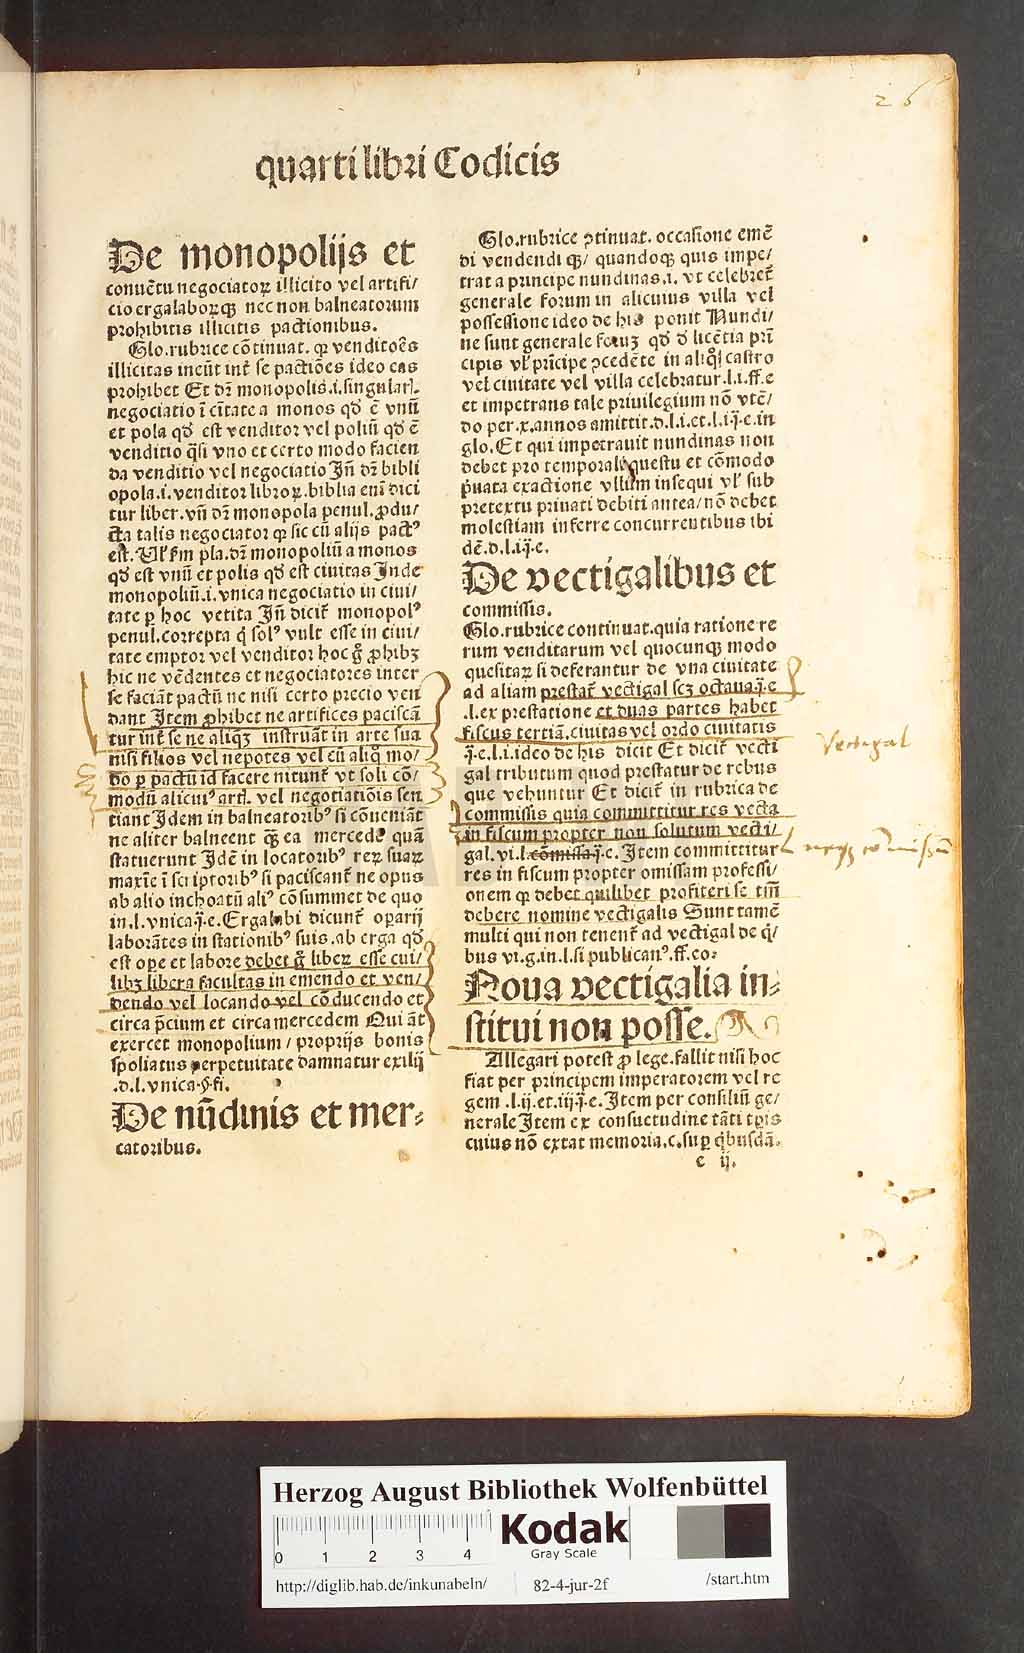 26
quarti libri Codicis
De monopolijs et
conuētu negociatoꝝ illicito vel artifi/
cio ergalaboꝝqꝫ nec non balneatorum
prohibitis illicitis pactionibus.
Glo.rubrice cōtinuat. qꝛ venditoēs
illicitas ineūt inť se pactiōes ideo eas
prohibet Et dꝛ̄ monopolis.i.singulari
negociatio ī cītate a monos qd̕ ē vnū
et pola qd̕ est venditor vel poliū qd̕ ē
venditio q̄si vno et certo modo facien
da venditio vel negociatio Jn̄ dꝛ̄ bibli
opola.i.venditor libroꝝ.biblia eni̅ dici
tur liber.vn̄ dꝛ̄ monopola penul.ꝓdu/
cta talis negociator qꝛ sic cū alijs pactꝰ
est. Ul̕ fm pla.dꝛ̄ monopoliū a monos
qd̕ est vnū et polis qd̕ est ciuitas Jnde
monopoliū.i.vnica negociatio in ciui/
tate ꝑ hoc vetita Jn̄ dicit̕ monopolꝰ
penul.correpta q̇ solꝰ vult esse in ciui/
tate emptor vel venditor hoc g̊ ꝓhibꝫ
hic ne vēdentes et negociatores inter
se faciāt pactū ne nisi certo precio ven
dant Jtem ꝓhibet ne artifices paciscā
tur inť se ne aliqꝫ instruāt in arte sua
nisi filios vel nepotes vel cū aliq̊ mo/
do ꝑ pactū id facere nitunt̕ vt soli cō/
modū alicuiꝰ arti. vel negotiatiōis sen
tiant Jdem in balneatoribꝰ si cōueniāt
ne aliter balneent qꝫ̄ ea mercede quā
statuerunt Jdē in locatoribꝰ reꝝ suaꝝ
maxīe ī scriptoribꝰ si paciscant̕ ne opus
ab alio inchoatū aliꝰ cōsummet de quo
in.l.vnica.j̄.e.Ergalabi dicunt̕ oꝑarij
laborātes in stationibꝰ suis.ab erga qd̕
est oꝑe et labore debet g̊ liber esse cui/
libꝫ libera facultas in emendo et ven/
dendo vel locando vel cōducendo et
circa p̄cium et circa mercedem Qui āt
exercet monopolium / proprijs bonis
spoliatus perpetuitate damnatur exilij
.d.l.vnica.§.fi.
De nūdinis et mer⸗
catoribus.
Glo.rubrice ꝯtinuat. occasione emē
di vendendi qꝫ/ quandoqꝫ quis impe/
trat a principe nundinas.i. vt celebret̕
generale forum in alicuius villa vel
possessione ideo de his ponit Nundi/
ne sunt generale foruꝫ qd̕ d̕ licētia pri̅
cipis vl̕ pri̅cipe ꝯcedēte in aliq̊ castro
vel ciuitate vel villa celebratur.l.i.ff.e
et impetrans tale priuilegium nō vtē/
do per.x.annos amittit.d.l.i.et.l.i.j̄.e.in
glo.Et qui impetrauit nundinas non
debet pro temporali questu et cōmodo
p̄uata exactione vllum insequi vl̕ sub
pretextu priuati debiti antea/ nō debet
molestiam inferre concurrentibus ibi
dē.d.l.i.j̄.e.
De vectigalibus et
commissis.
Glo.rubrice continuat.quia ratione re
rum venditarum vel quocunqꝫ modo
quesitaꝝ si deferantur de vna ciuitate
ad aliam prestat̕ vectigal scꝫ octaua.j̄.e
.l.ex prestatione et duas partes habet
fiscus tertiā.ciuitas vel ordo ciuitatis
j̄.e.l.i.ideo de his dicit Et dicit̕ vecti
gal tributum quod prestatur de rebus
que vehuntur Et dicit̕ in rubrica de
commissis quia committitur res vecta
in fiscum propter non solutum vecti/
gal. vt.l.cōmissa.j̄.e. Jtem committitur
res in fiscum propter omissam professi/
onem qꝛ debet quilibet profiteri se tm̄
debere nomine vectigalis Sunt tamē
multi qui non tenent̕ ad vectigal de q̇/
bus vi.g.in.l.si publicanꝰ.ff.eo.
Noua vectigalia in⸗
stitui non posse.
Allegari potest ꝓ lege.fallit nisi hoc
fiat per principem imperatorem vel re
gem .l.ij.et.iij.j̄.e.Jtem per consiliū ge/
nerale Jtem ex consuetudine tāti tꝑis
cuius nō extat memoria.c.suꝑ q̇busdā.
e ij.
Vectigal
Herzog August Bibliothek Wolfenbüttel
0 1 2 3 4
Kodak
Gray Scale
http://diglib.hab.de/inkunabeln/ 82-4-jur-2f /start.htm